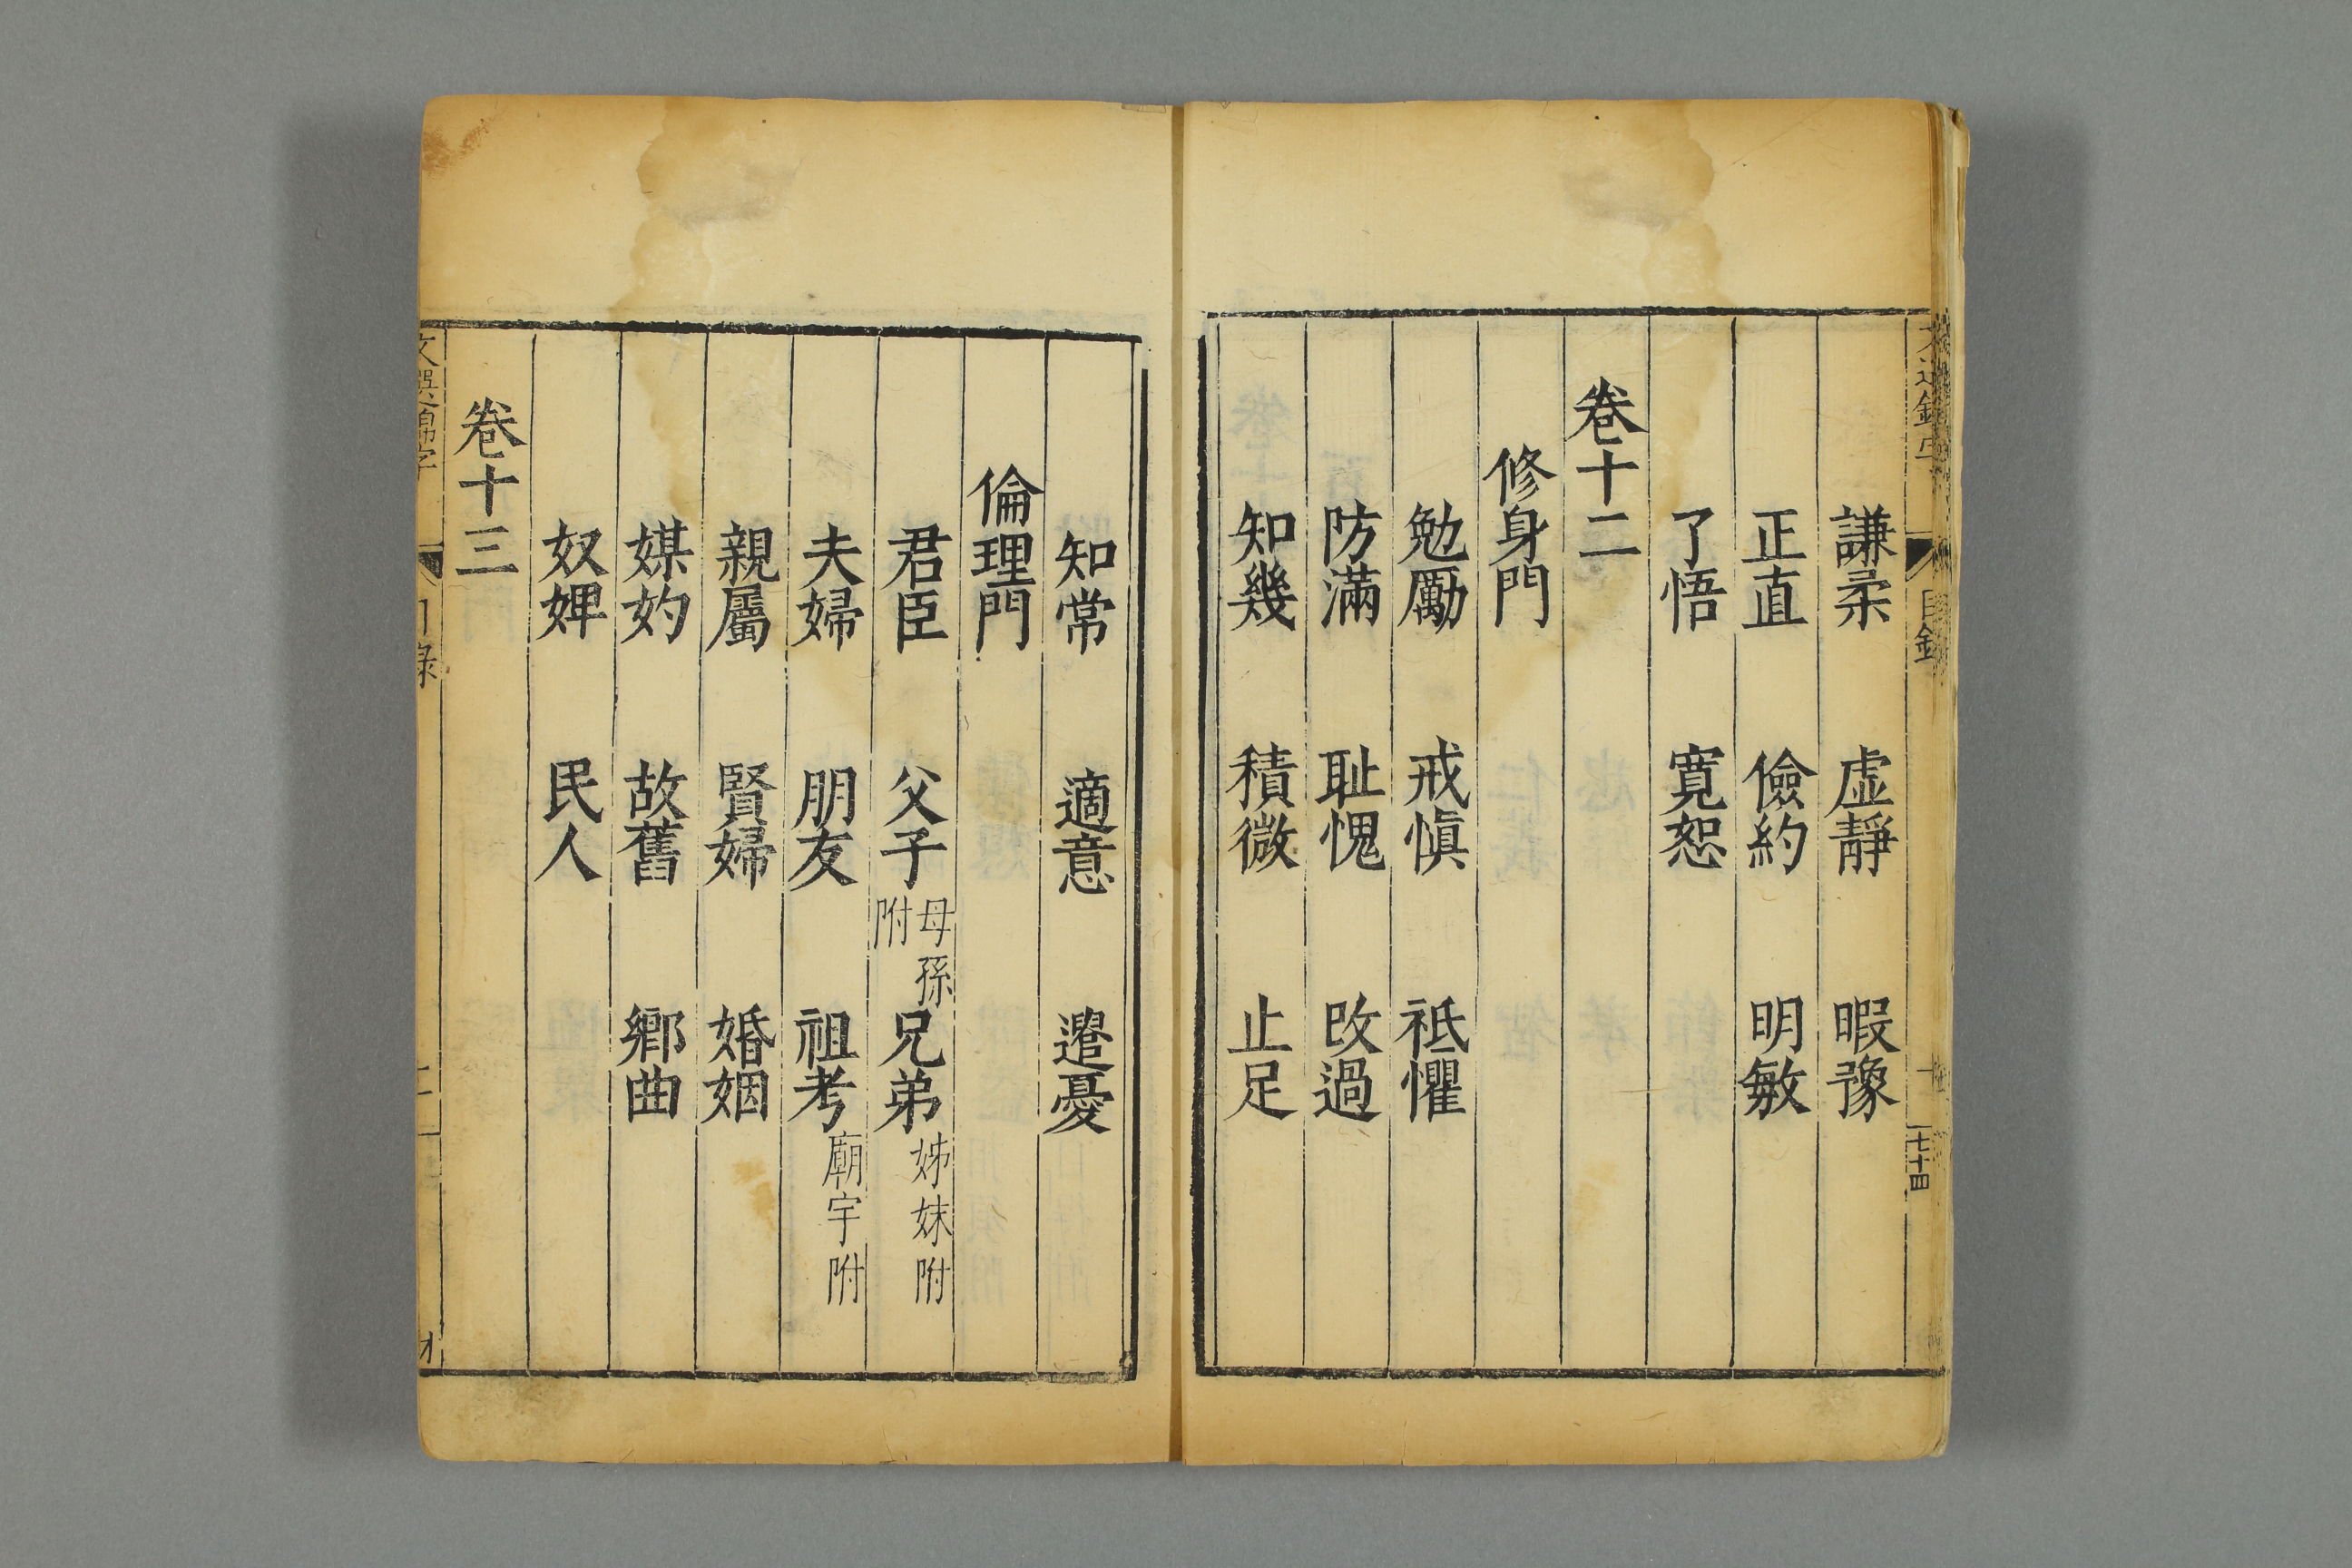 謙柔 虛靜 暇豫
正直 儉約 明敏
了悟 寬恕
卷十二
修身門
勉勵 戒愼 祗懼
防滿 耻愧 改過
知幾 積微 止足
目錄
七十四
知常 適意 遣憂
倫理門
君臣 父子 母孫附 兄弟 姊妹附
夫婦 朋友 祖考 廟宇附
親屬 賢婦 婚姻
媒妁 故舊 鄉曲
奴婢 民人
卷十三